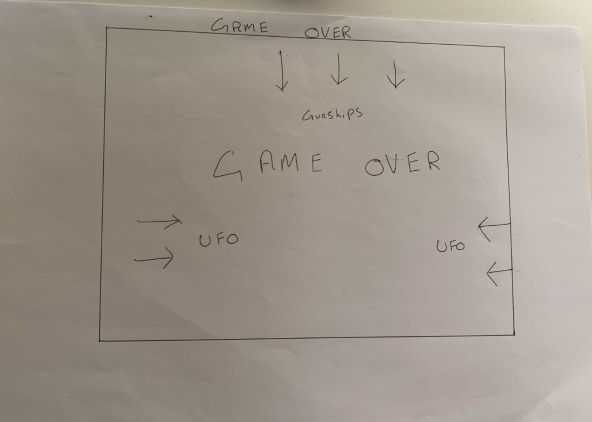 GAME OVER
Gunships
GAME OVER
UFO
UFO